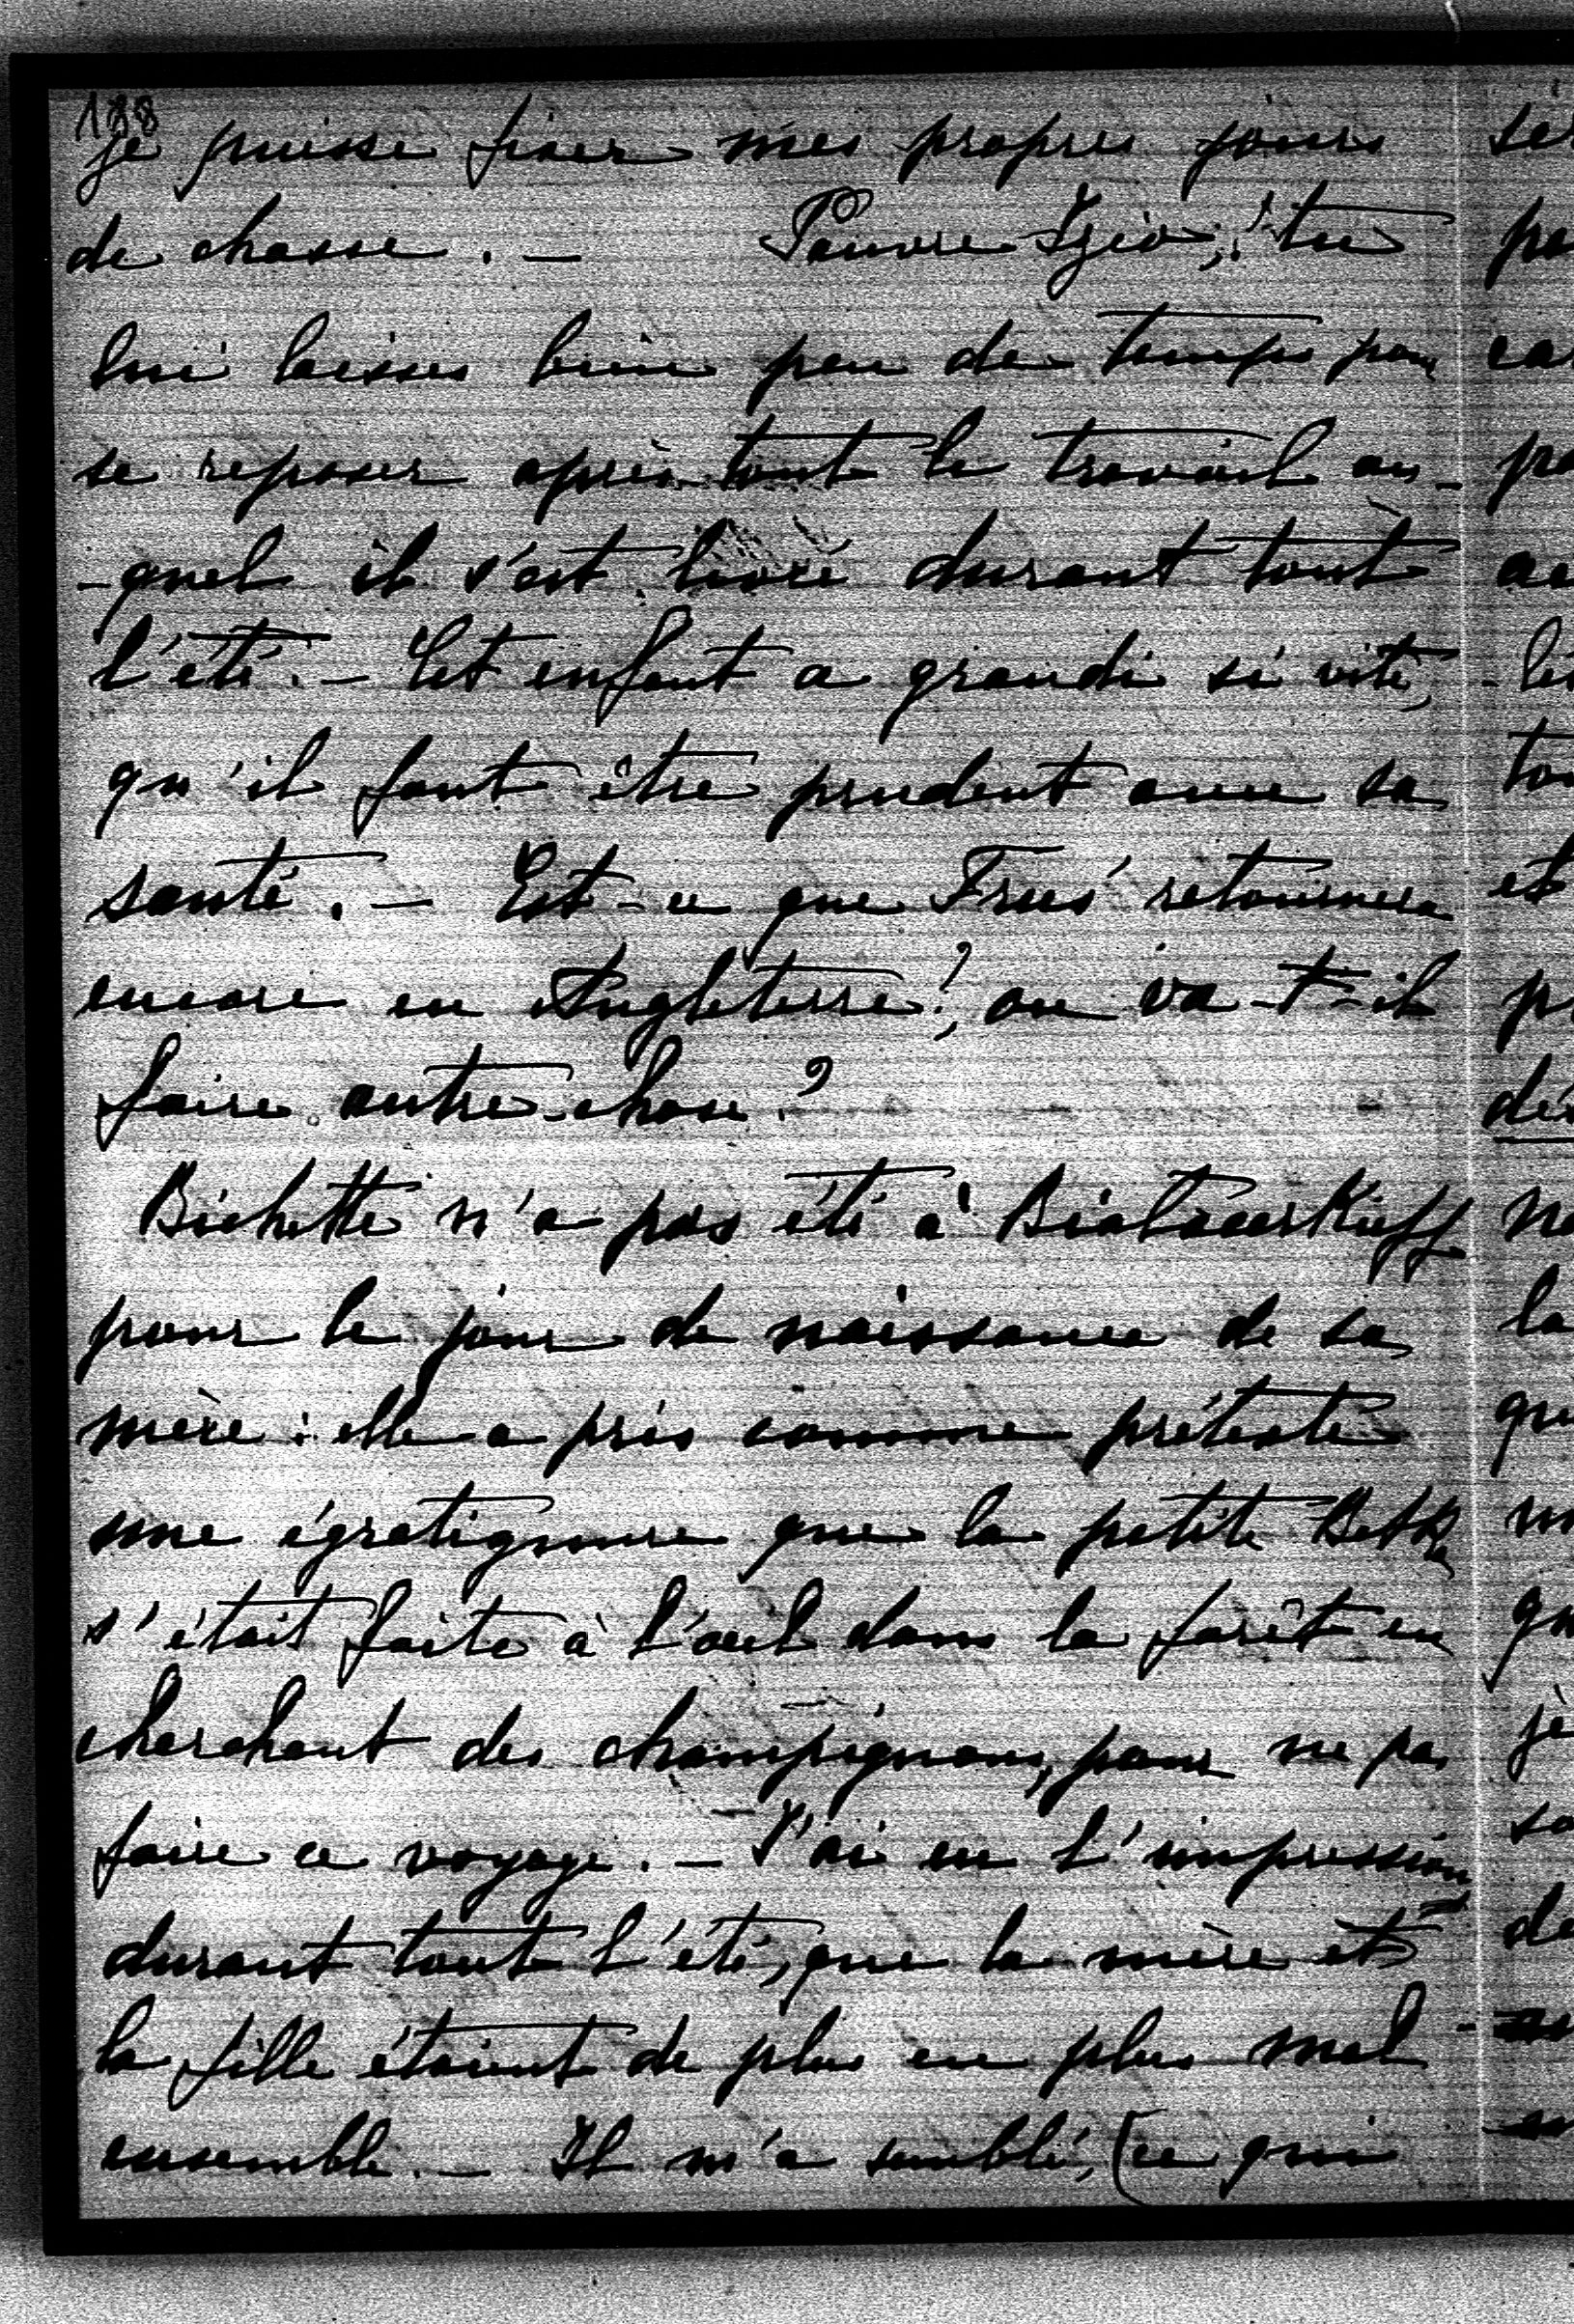 188
je puisse fixer mes propres jours
de chasse. — Pauvre Izio, tu
lui laisses bien peu de temps pour
se reposer après tout le travail au-
-quel il s'est livré durant tout
l'été. — Cet enfant a grandi si vite,
qu'il faut être prudent avec sa
santé. — Est-ce que retournera
encore en Angleterre?, ou va-t-il
faire autre chose?
Bichette n'a pas été à
pour le jour de naissance de sa
mère: elle a pris comme prétexte
une égratignure que la petite
s'était faite à l'œil dans la forêt en
cherchant des champignons, pour ne pas
faire ce voyage. — J'ai eu l'impression
durant tout l'été, que la mère et
la fille étaient de plus en plus mal
ensemble. — Il m'a semblé, (ce qui